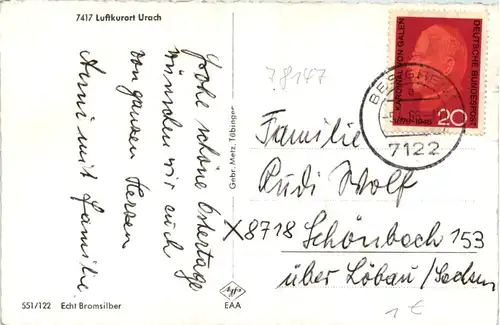 7417 Luftkurort Urach
Frohe schöne Ostertage
wünschen wir euch
von ganzen Herzen
Armi mit Familie.
551/122 Echt Bromsilber
Gebr. Metz, Tübingen
Agfa
EAA
78147
KARDINAL VON GALEN
1878-1946
DEUTSCHE BUNDESPOST
20
7122
Familie
Rudi Wolf
X8718 Schönbach 153
über Löbau/Sachsen
1 €